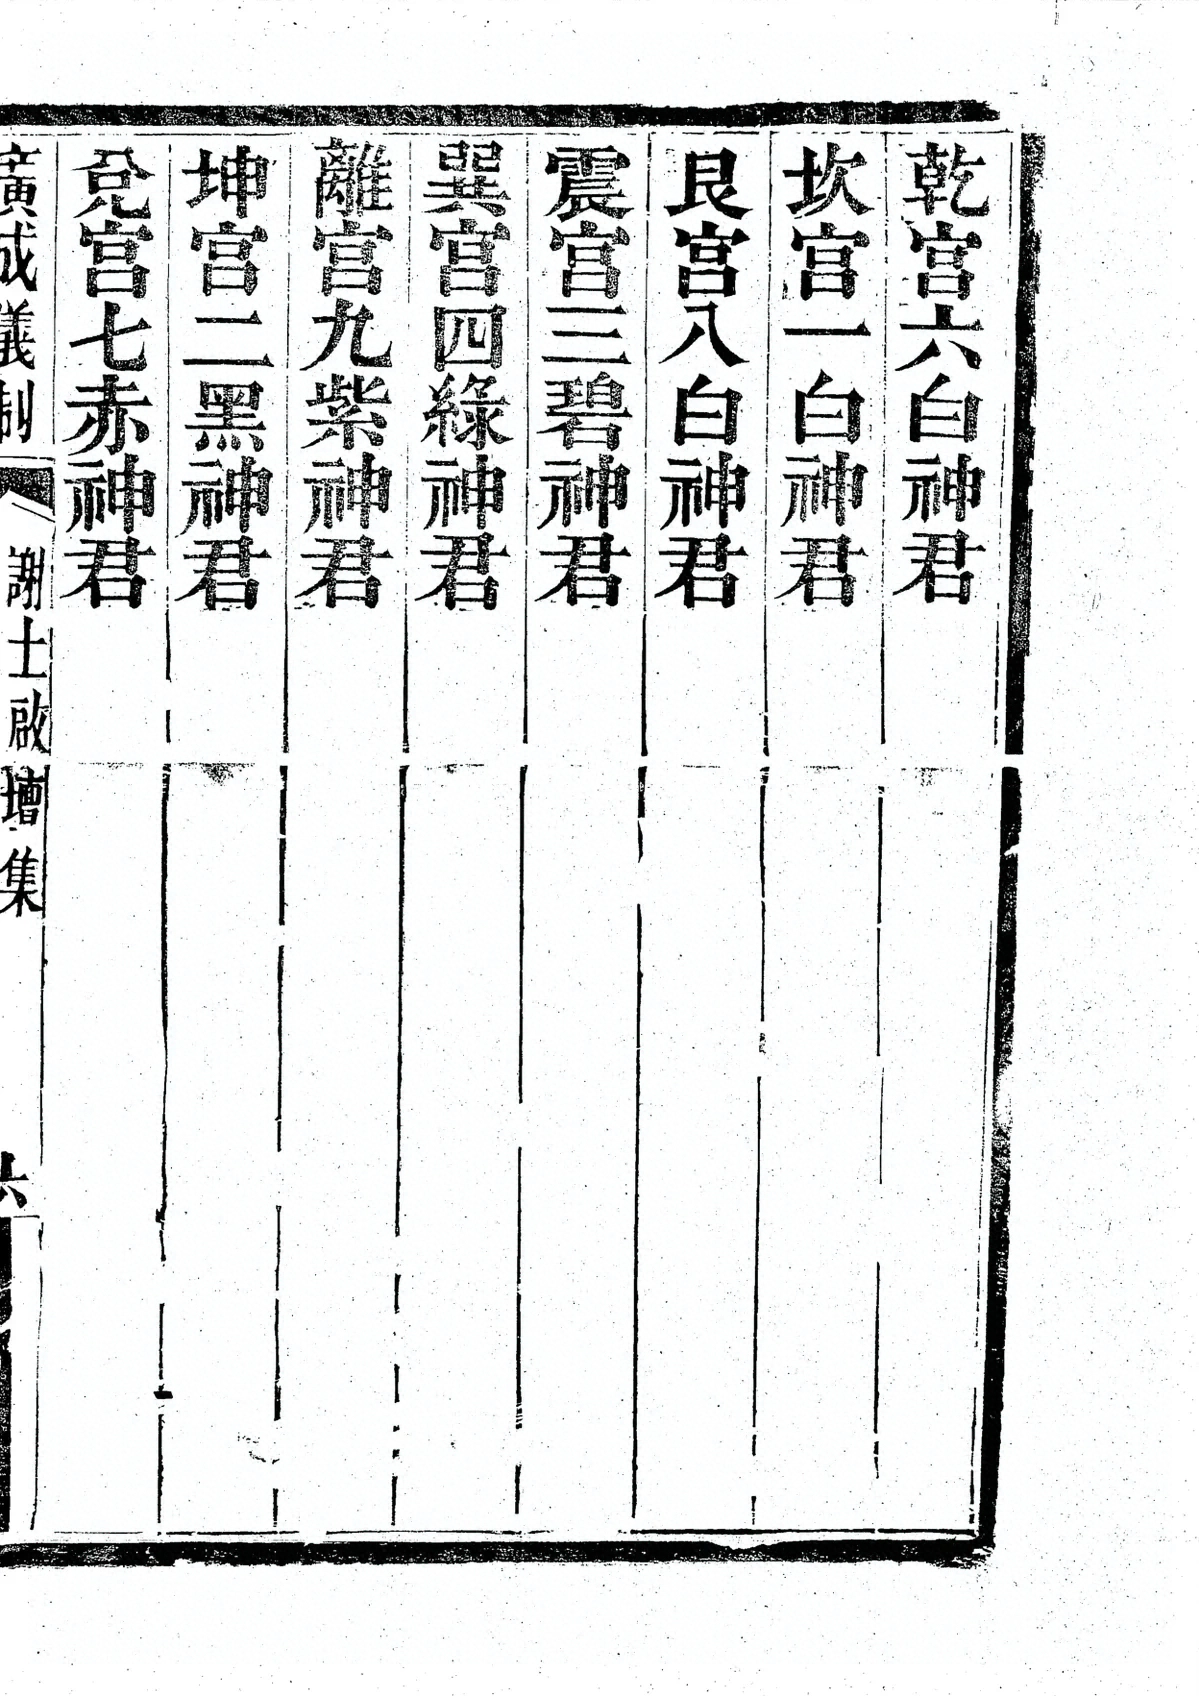 乾宫六白神君
坎宫一白神君
艮宫八白神君
震宫三碧神君
巽宫四綠神君
離宫九紫神君
坤宫二黑神君
兌宫七赤神君
廣成儀制
謝土啟壇集
六